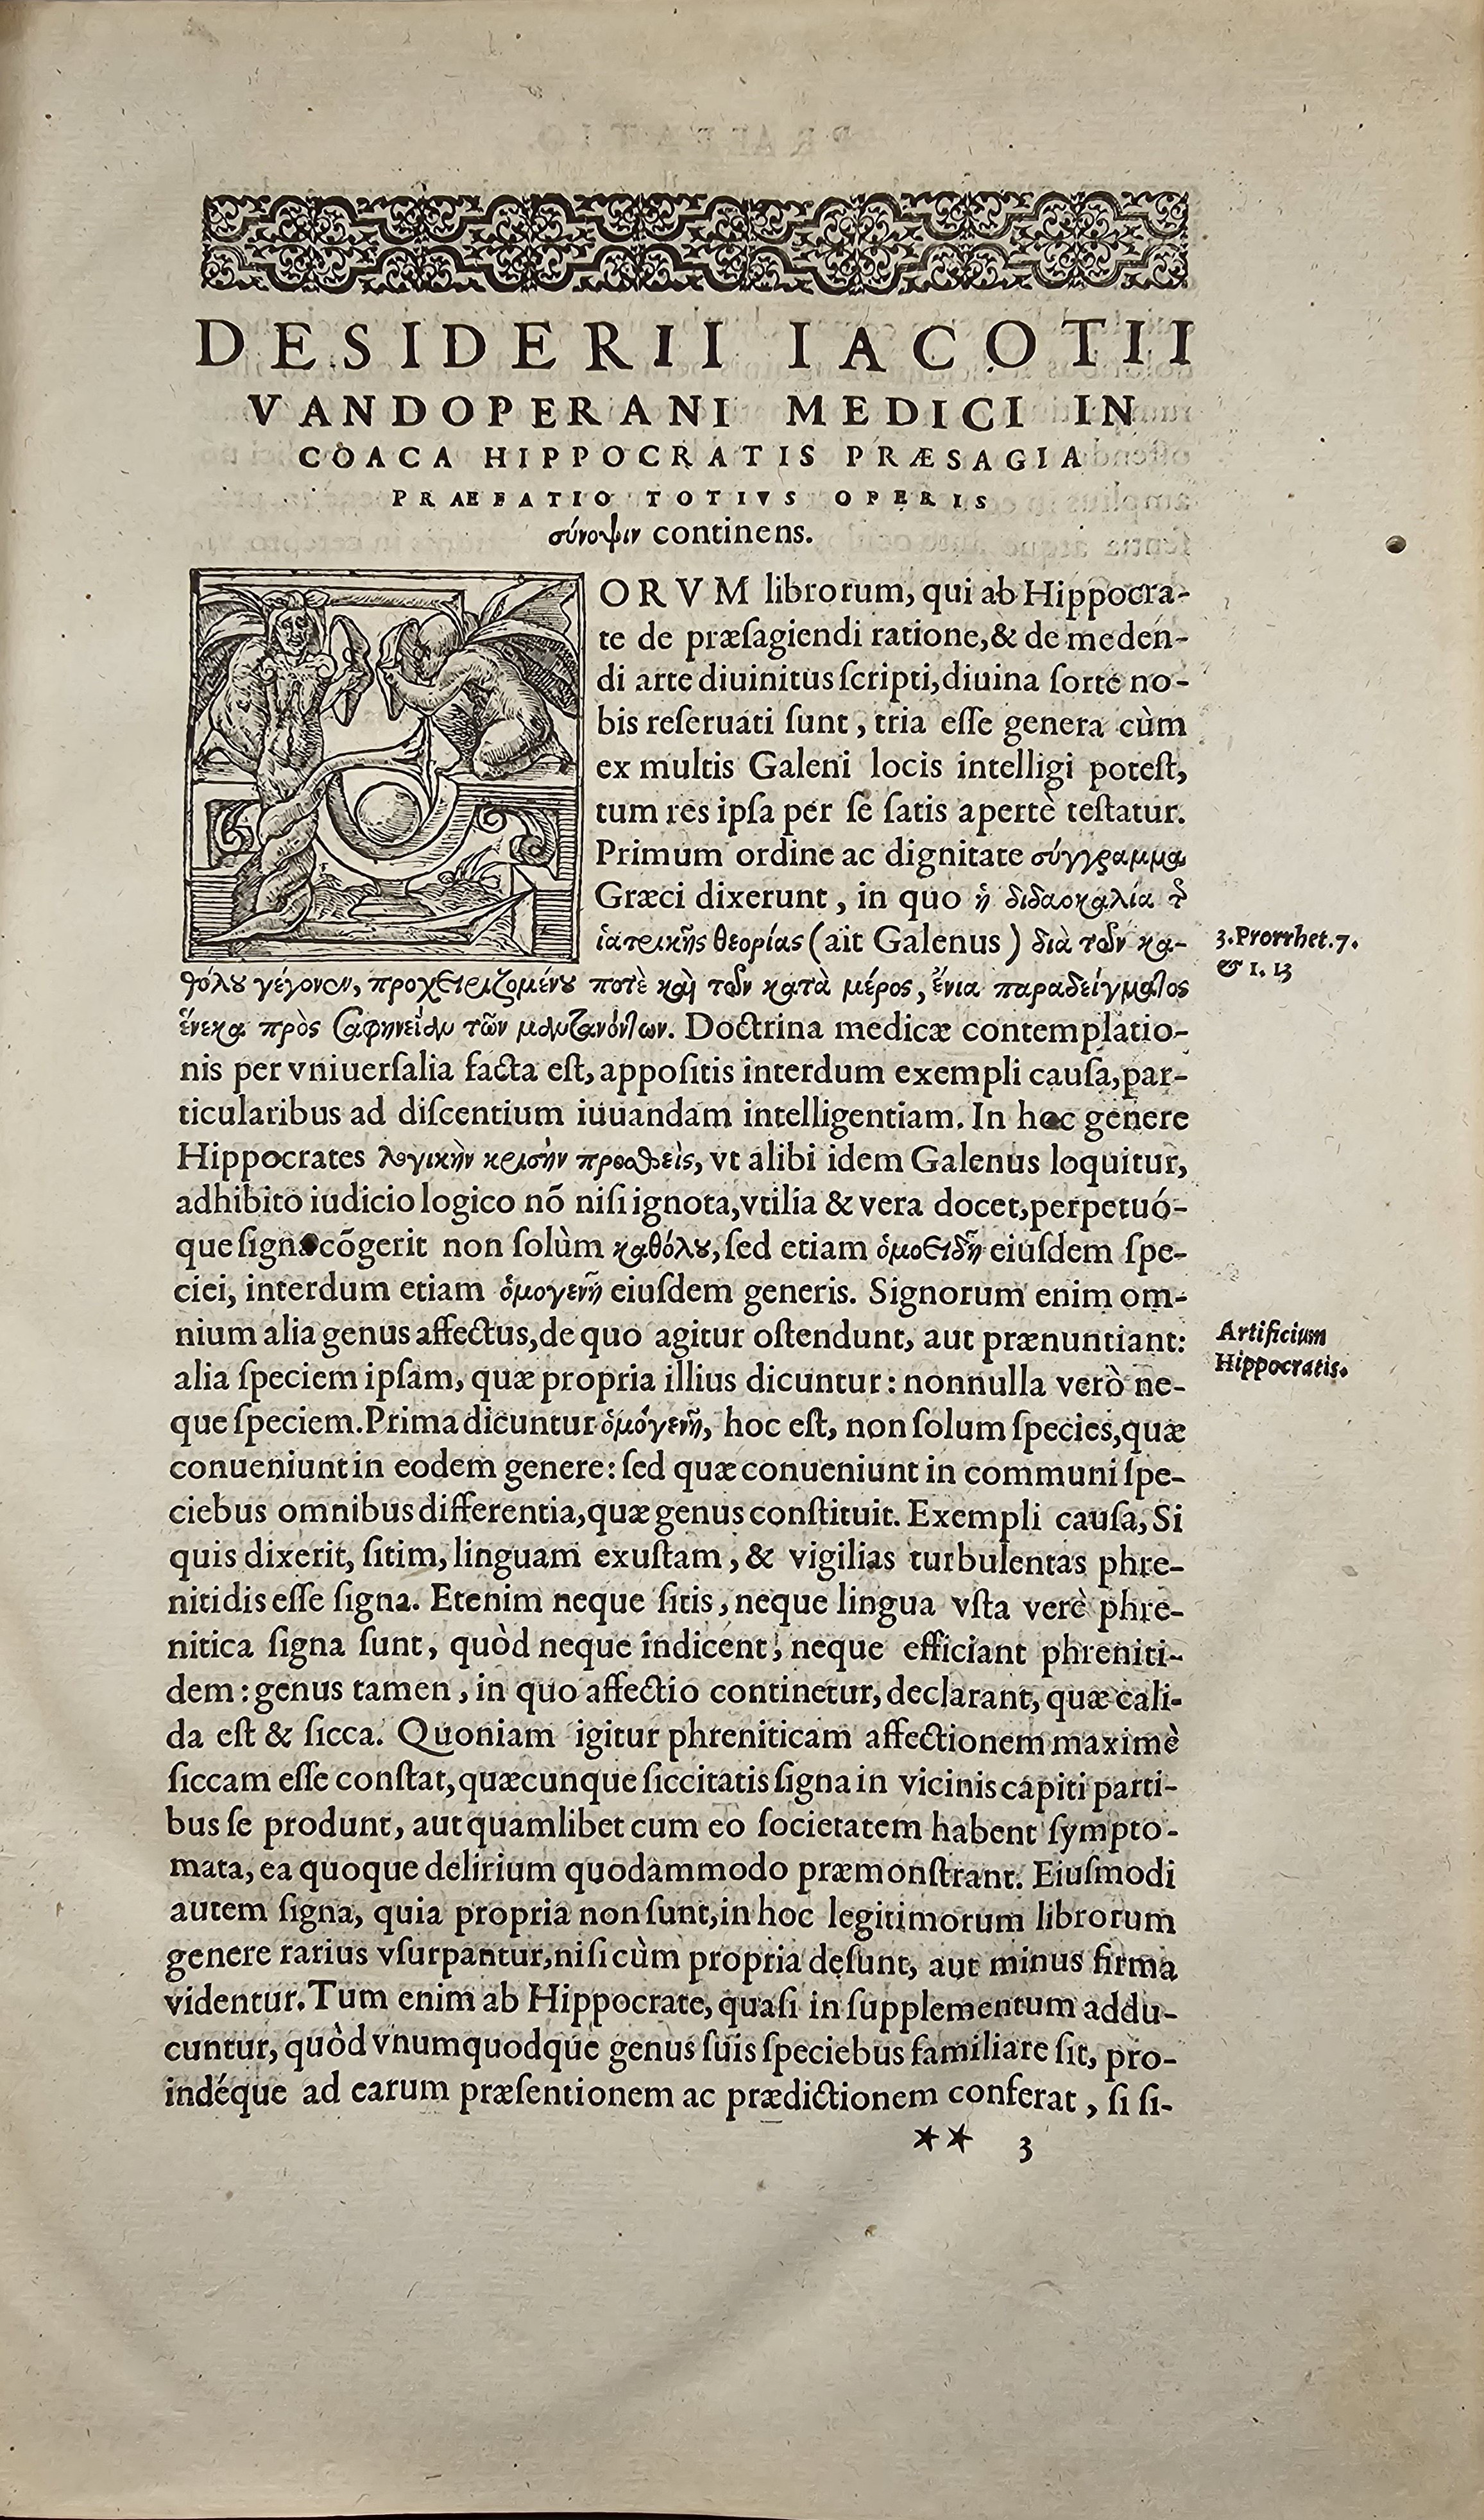 DESIDERII IACOTII
VANDOPERANI MEDICI IN
COACA HIPPOCRATIS PRÆSAGIA
PRAEFATIO TOTIVS OPERIS
σύνοψιν continens.
ORVM librorum, qui ab Hippocra-
te de præſagiendi ratione,& de meden-
di arte diuinitus ſcripti,diuina ſorte no-
bis reſeruati ſunt, tria eſſe genera cùm
ex multis Galeni locis intelligi poteſt,
tum res ipſa per ſe ſatis apertè teſtatur.
Primum ordine ac dignitate σύγγραμμα
Græci dixerunt, in quo ἡ διδασκαλία τ̃
ἰατρικῆς θεορίας (ait Galenus) διὰ τῶν κα-
θόλου γέγονεν, προχειριζομένου ποτὲ καὶ τῶν κατὰ μέρος, ἔνια παραδείγματος
ἕνεκα πρὸς σαφηνείαν τῶν μανθανόντων. Doctrina medicæ contemplatio-
nis per vniuerſalia facta eſt, appoſitis interdum exempli cauſa,par-
ticularibus ad diſcentium iuuandam intelligentiam. In hoc genere
Hippocrates λογικὴν κρισὴν προσθεὶς, vt alibi idem Galenus loquitur,
adhibito iudicio logico nõ niſi ignota,vtilia & vera docet,perpetuó-
que ſigna cõgerit non ſolùm καθόλου, ſed etiam ὁμοειδῆ eiuſdem ſpe-
ciei, interdum etiam ὁμογενῆ eiuſdem generis. Signorum enim om-
nium alia genus affectus,de quo agitur oſtendunt, aut prænuntiant:
alia ſpeciem ipſam, quæ propria illius dicuntur: nonnulla verò ne-
que ſpeciem. Prima dicuntur ὁμογενῆ, hoc eſt, non ſolum ſpecies,quæ
conueniunt in eodem genere: ſed quæ conueniunt in communi ſpe-
ciebus omnibus differentia,quæ genus conſtituit. Exempli cauſa, Si
quis dixerit, ſitim, linguam exuſtam, & vigilias turbulentas phre-
nitidis eſſe ſigna. Etenim neque ſitis, neque lingua vſta verè phre-
nitica ſigna ſunt, quòd neque indicent, neque efficiant phreniti-
dem: genus tamen, in quo affectio continetur, declarant, quæ cali-
da eſt & ſicca. Quoniam igitur phreniticam affectionem maximè
ſiccam eſſe conſtat,quæcunque ſiccitatis ſigna in vicinis capiti parti-
bus ſe produnt, aut quamlibet cum eo ſocietatem habent ſympto-
mata, ea quoque delirium quodammodo præmonſtrant. Eiuſmodi
autem ſigna, quia propria non ſunt,in hoc legitimorum librorum
genere rarius vſurpantur,niſi cùm propria deſunt, aut minus firma
videntur. Tum enim ab Hippocrate, quaſi in ſupplementum addu-
cuntur, quòd vnumquodque genus ſuis ſpeciebus familiare ſit, pro-
indéque ad earum præſentionem ac prædictionem conferat, ſi ſi-
** 3
3.Prorrhet.7.
& 1. 13
Artificium
Hippocratis.